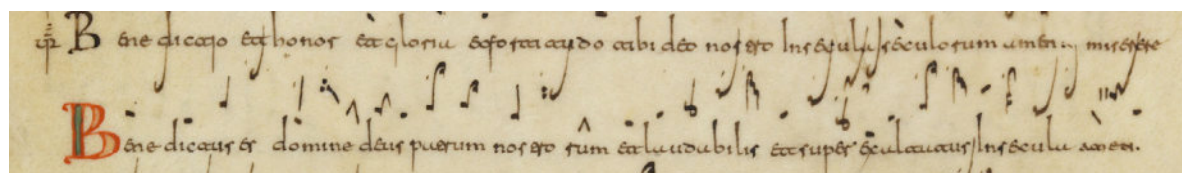 Benedictio et honor et gloria et fortitudo tibi deo nostro In secula seculorum amen miserere
Benedictus es domine deus patrum nostro rum et laudabilis et super exaltatus In secula amen.